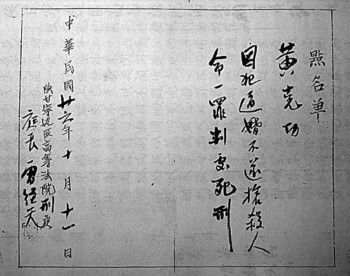 點名單
黃克功
因犯逼婚不遂槍殺人
命一罪判處死刑
中華民國廿六年十月十一日
陝甘寧边區高等法院刑庭
庭長雷经天